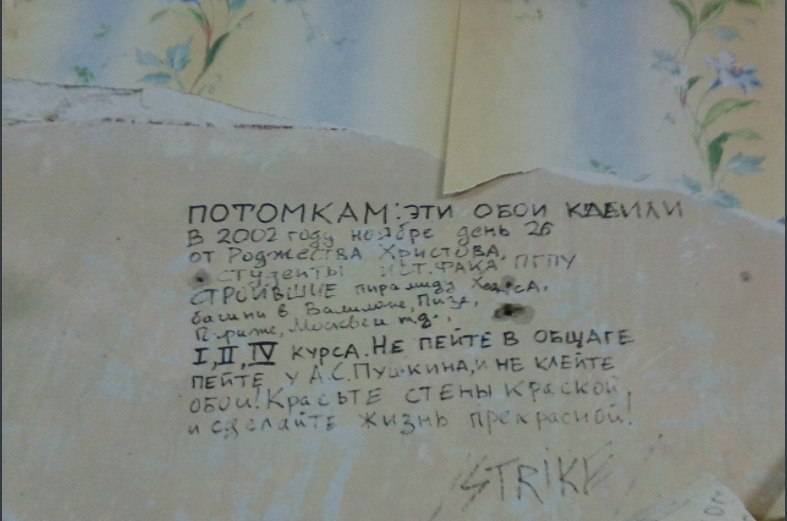 ПОТОМКАМ: ЭТИ ОБОИ КЛЕИЛИ
В 2002 году ноябре день 26
от Роджества Христова,
студенты ИСТ. ФАКА ПГПУ
СТРОИВШИЕ пирамиду
башни в Вавилоне, Пизе,
Париже, Москве и т.д.,
I, II, IV КУРСА. НЕ ПЕЙТЕ В ОБЩАГЕ
ПЕЙТЕ У А.С. ПУШКИНА, И НЕ КЛЕЙТЕ
ОБОИ! КРАСЬТЕ СТЕНЫ КРАСКОЙ,
и сделайте жизнь прекрасной!
STRIKE